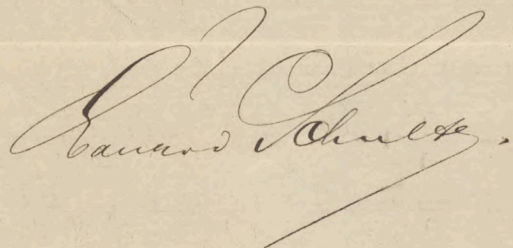 Eduard Schulte.